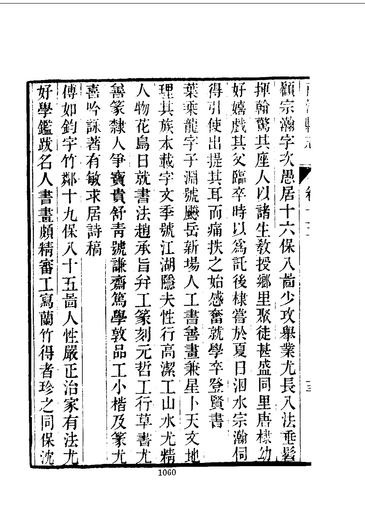 顧宗瀚字次愚居十六保入啚少攻舉業尤長八法垂髫
揮翰驚其座人以諸生敎授鄉里聚徒甚盛同里唐棣幼
好嬉戲其父臨卒時以爲託後棣嘗於夏日泅水宗瀚伺
得引使出提其耳而痛抶之始感奮就學卒登賢書
葉乘龍字子淵號颷岳新場人工書善畫兼星卜天文地
理其族本載字文季號江湖隱夫性行高潔工山水尤精
人物花鳥曰就書法趙承旨弁工篆刻元哲工行草書尤
善篆隸人爭寶貴舒靑號謙齋篤學敦品工小楷及篆尤
喜吟詠著有敏求居詩稿
傅如鈞字竹鄰十九保八十五啚人性嚴正治家有法尤
好學鑑跋名人書畫頗精審工寫蘭竹得者珍之同保沈
1060